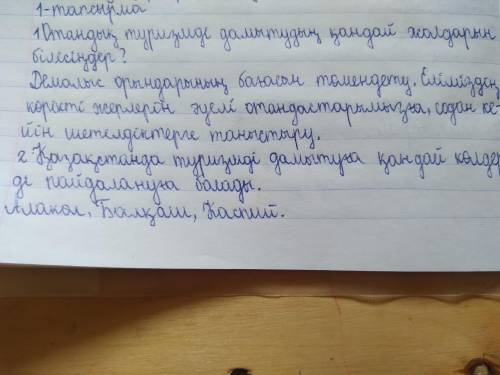 1-тапсырма
1Отандық туризмді дамытудың қандай жолдарын
білесіңдер?
Демалыс орындарының бағасын төмендету. Еліміздің
көрікті жерлерін әуелі отандастарымызға, содан ке-
йін шетелдіктерге таныстыру.
2 Қазақстанда туризмді дамытуға қандай көлдер
ді пайдалануға болады.
Алакөл, Балқаш, Каспий.